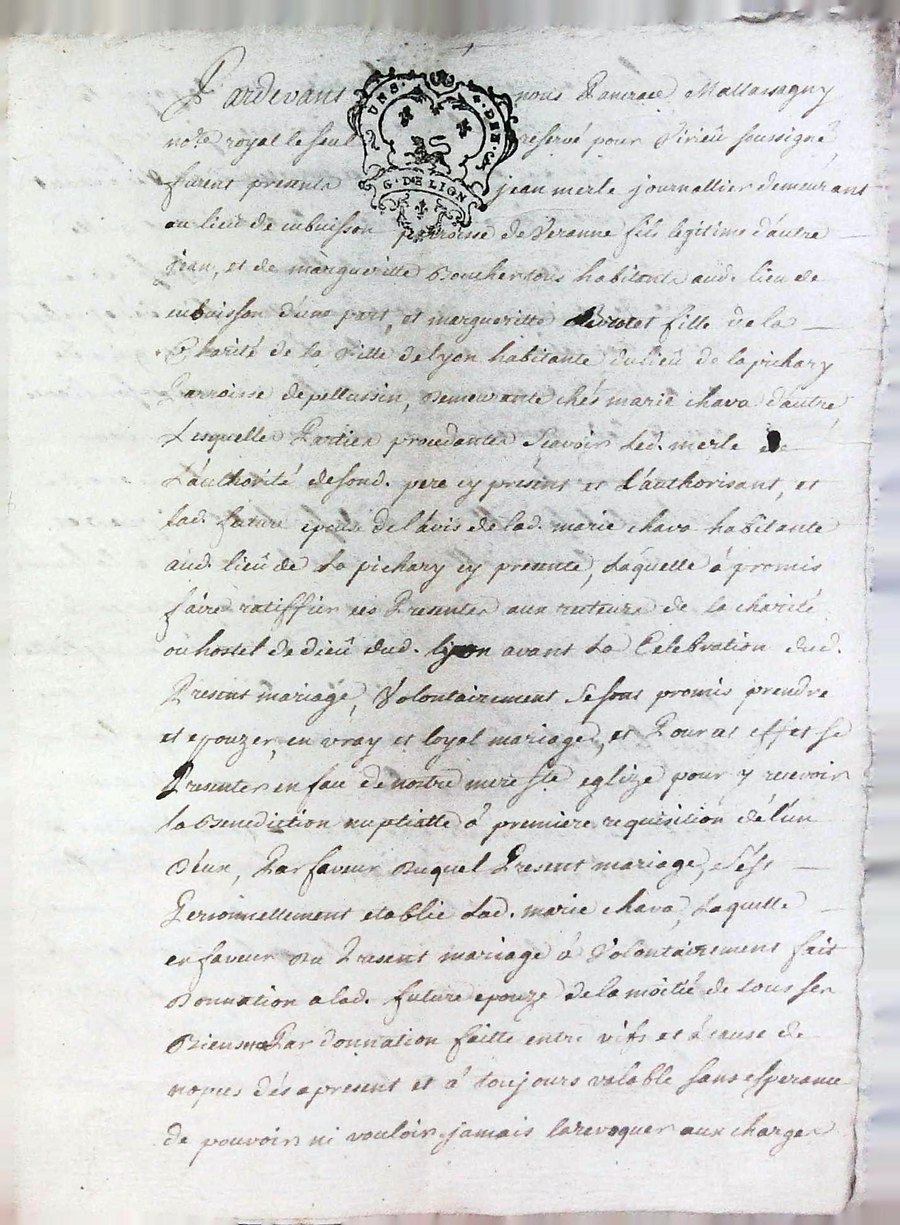 Pardevant nous Pancrace Mallassagny
no.re royal le seul reservé pour Virieu soussigné
furent presents jean merle journallier demeurant
au lieu de cubuisson parroisse de Veranne fils legitime d'autre
jean, et de margueritte Boucher tous habitants aud. lieu de
cubuisson d'une part, et margueritte fille de la
Charité de la Ville de lyon habitante du lieu de la pichary
Parroisse de pellussin, Demeurante chés marie chava d'autre
Lesquelles Parties procedantes Scavoir Led. merle de
L'authorité de sond. pere cy présent et L'authorisant, et
Lad. future epouse de l'avis de lad. marie chava habitante
aud. lieu de La pichary cy presente, Laquelle à promis
faire ratiffier ces Presentes aux recteurs de la charité
ou hostel de dieu dud. lyon avant La Celebration dud.
Present mariage, Volontairement se sont promis prendre
et epouzer, en vray et loyal mariage, et Pour cet effet se
Presenter en face de nostre mere Ste eglize pour y recevoir
la Benediction nuptialle à premiere requisition de l'un
D'eux, Par faveur Duquel Present mariage, s'est
Personnellement etablie Lad. marie chava, Laquelle
en faveur Du Present mariage à Volontairement fait
Donnation a lad. future epouze de la moitié de tous ses
Biens Par donnation faitte entre vifs et à cause de
nopces dés apresent et à toujours valable sans esperance
de pouvoir ni vouloir jamais la revoquer aux charges
UNS. 4. DEN.
G. DE LION